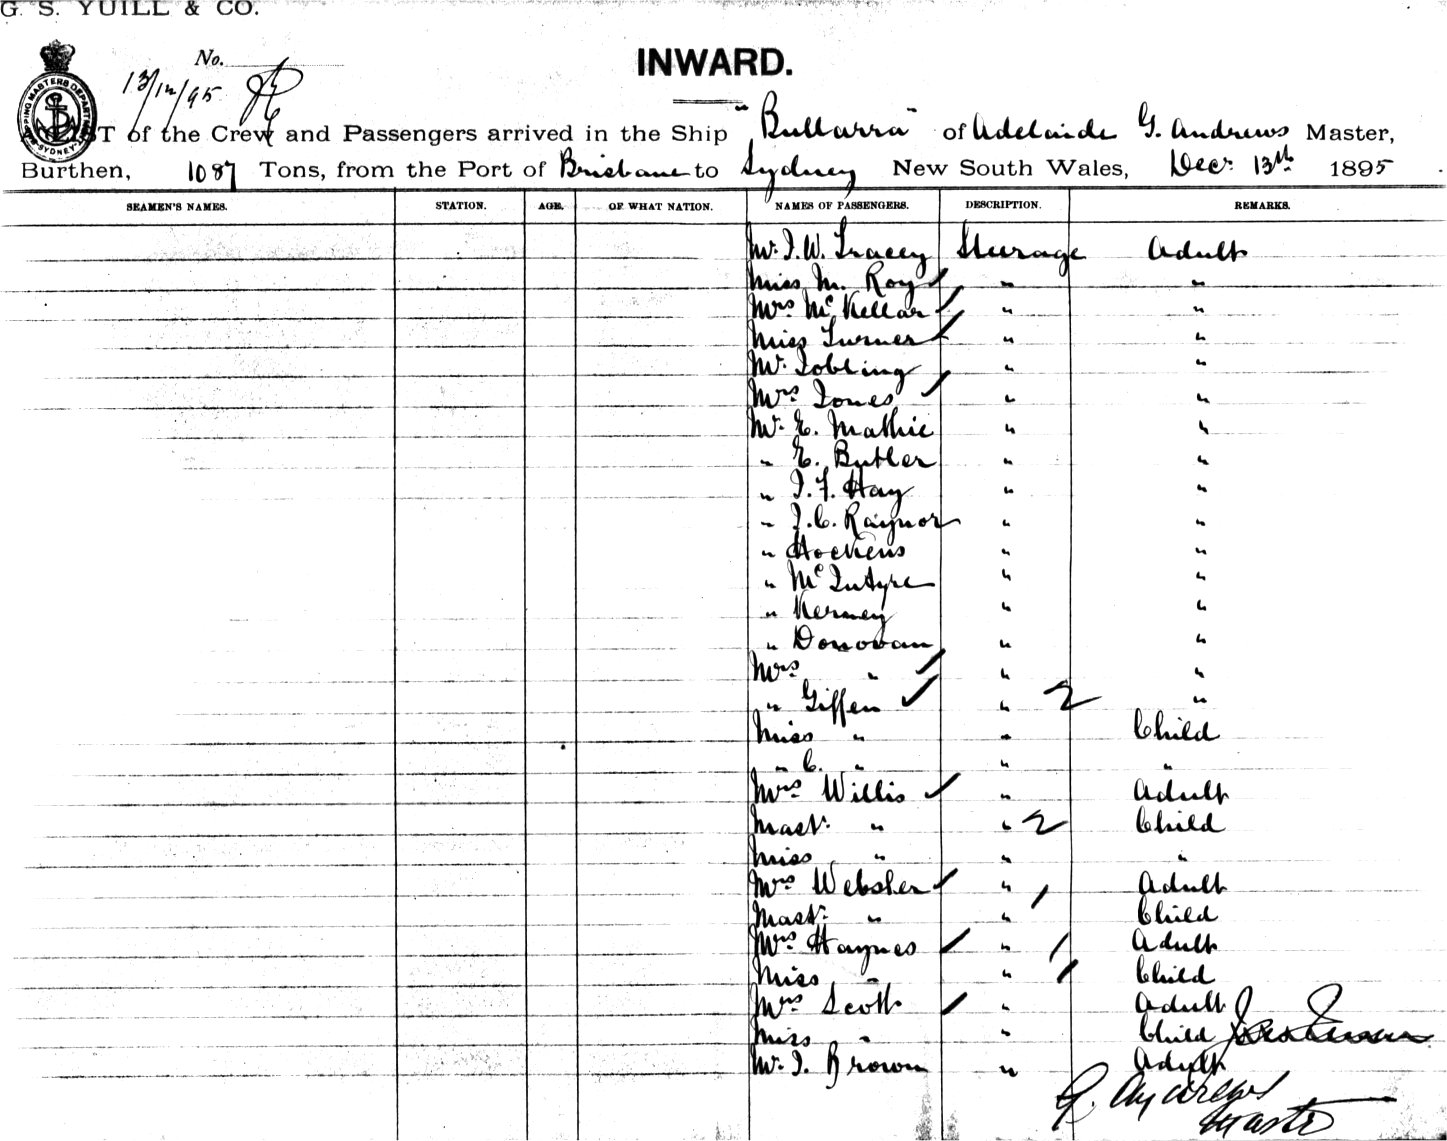 G. S. YUILL & CO.
INWARD.
No.
13/12/95
SHIPPING MASTERS DEPARTMENT SYDNEY
LIST of the Crew and Passengers arrived in the Ship "Bullarra" of Adelaide G. Andrews Master,
Burthen, 1087 Tons, from the Port of Brisbane to Sydney New South Wales, Decr 13th 1895
SEAMEN'S NAMES. STATION. AGE. OF WHAT NATION. NAMES OF PASSENGERS. DESCRIPTION. REMARKS.
Mr. J. W. Tracey Steerage Adult
Miss M. Roy " "
Mrs McKellar " "
Miss Turner " "
Mr. Jobling " "
Mrs Jones " "
Mr. E. Mathie " "
" E. Butler " "
" J. F. Hay " "
" J. C. Raynor " "
" Hockens " "
" McIntyre " "
" Kerney " "
" Donovan " "
Mrs " " "
" Giffen " 2 "
Miss " " Child
" C. " " "
Mrs Willis " Adult
Mastr. " " 2 Child
Miss " " "
Mrs Webster " Adult
Mastr. " " 1 Child
Mrs Haynes " 1 Adult
Miss " " 1 Child
Mrs Scott " Adult
Miss " " Child
Mr. J. Brown " Adult
G. Andrews
Master